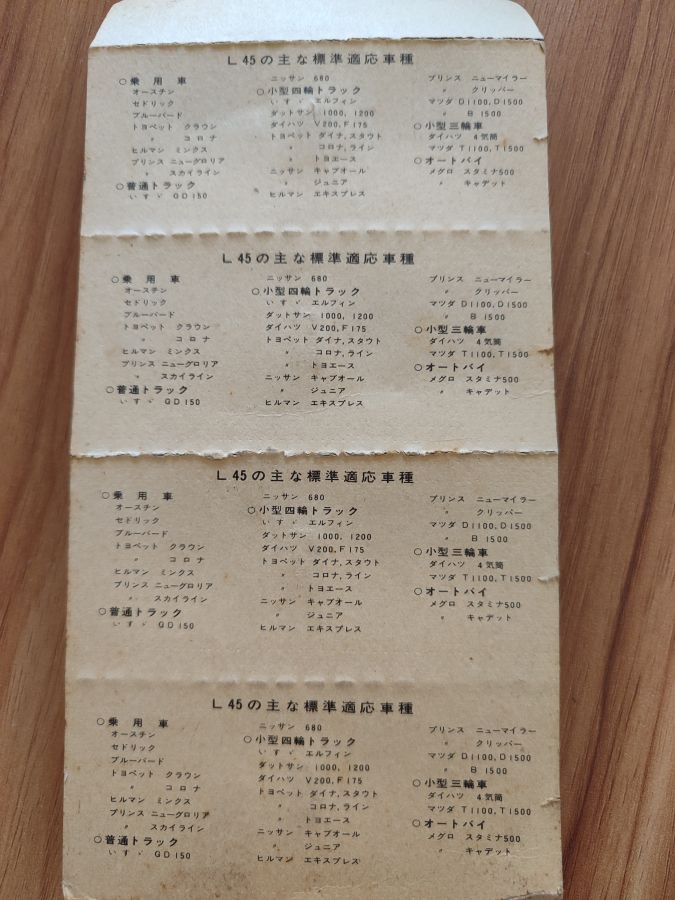 L45の主な標準適応車種
○乗用車
オースチン
セドリック
ブルーバード
トヨペット クラウン
〃 コロナ
ヒルマン ミンクス
プリンス ニューグロリア
〃 スカイライン
○普通トラック
いすゞ GD150
ニッサン 680
○小型四輪トラック
いすゞ エルフィン
ダットサン 1000, 1200
ダイハツ V200, F175
トヨペット ダイナ, スタウト
〃 コロナ, ライン
〃 トヨエース
ニッサン キャブオール
〃 ジュニア
ヒルマン エキスプレス
プリンス ニューマイラー
〃 クリッパー
マツダ D1100, D1500
〃 B1500
○小型三輪車
ダイハツ 4気筒
マツダ T1100, T1500
○オートバイ
メグロ スタミナ500
〃 キャデット
L45の主な標準適応車種
○乗用車
オースチン
セドリック
ブルーバード
トヨペット クラウン
〃 コロナ
ヒルマン ミンクス
プリンス ニューグロリア
〃 スカイライン
○普通トラック
いすゞ GD150
ニッサン 680
○小型四輪トラック
いすゞ エルフィン
ダットサン 1000, 1200
ダイハツ V200, F175
トヨペット ダイナ, スタウト
〃 コロナ, ライン
〃 トヨエース
ニッサン キャブオール
〃 ジュニア
ヒルマン エキスプレス
プリンス ニューマイラー
〃 クリッパー
マツダ D1100, D1500
〃 B1500
○小型三輪車
ダイハツ 4気筒
マツダ T1100, T1500
○オートバイ
メグロ スタミナ500
〃 キャデット
L45の主な標準適応車種
○乗用車
オースチン
セドリック
ブルーバード
トヨペット クラウン
〃 コロナ
ヒルマン ミンクス
プリンス ニューグロリア
〃 スカイライン
○普通トラック
いすゞ GD150
ニッサン 680
○小型四輪トラック
いすゞ エルフィン
ダットサン 1000, 1200
ダイハツ V200, F175
トヨペット ダイナ, スタウト
〃 コロナ, ライン
〃 トヨエース
ニッサン キャブオール
〃 ジュニア
ヒルマン エキスプレス
プリンス ニューマイラー
〃 クリッパー
マツダ D1100, D1500
〃 B1500
○小型三輪車
ダイハツ 4気筒
マツダ T1100, T1500
○オートバイ
メグロ スタミナ500
〃 キャデット
L45の主な標準適応車種
○乗用車
オースチン
セドリック
ブルーバード
トヨペット クラウン
〃 コロナ
ヒルマン ミンクス
プリンス ニューグロリア
〃 スカイライン
○普通トラック
いすゞ GD150
ニッサン 680
○小型四輪トラック
いすゞ エルフィン
ダットサン 1000, 1200
ダイハツ V200, F175
トヨペット ダイナ, スタウト
〃 コロナ, ライン
〃 トヨエース
ニッサン キャブオール
〃 ジュニア
ヒルマン エキスプレス
プリンス ニューマイラー
〃 クリッパー
マツダ D1100, D1500
〃 B1500
○小型三輪車
ダイハツ 4気筒
マツダ T1100, T1500
○オートバイ
メグロ スタミナ500
〃 キャデット